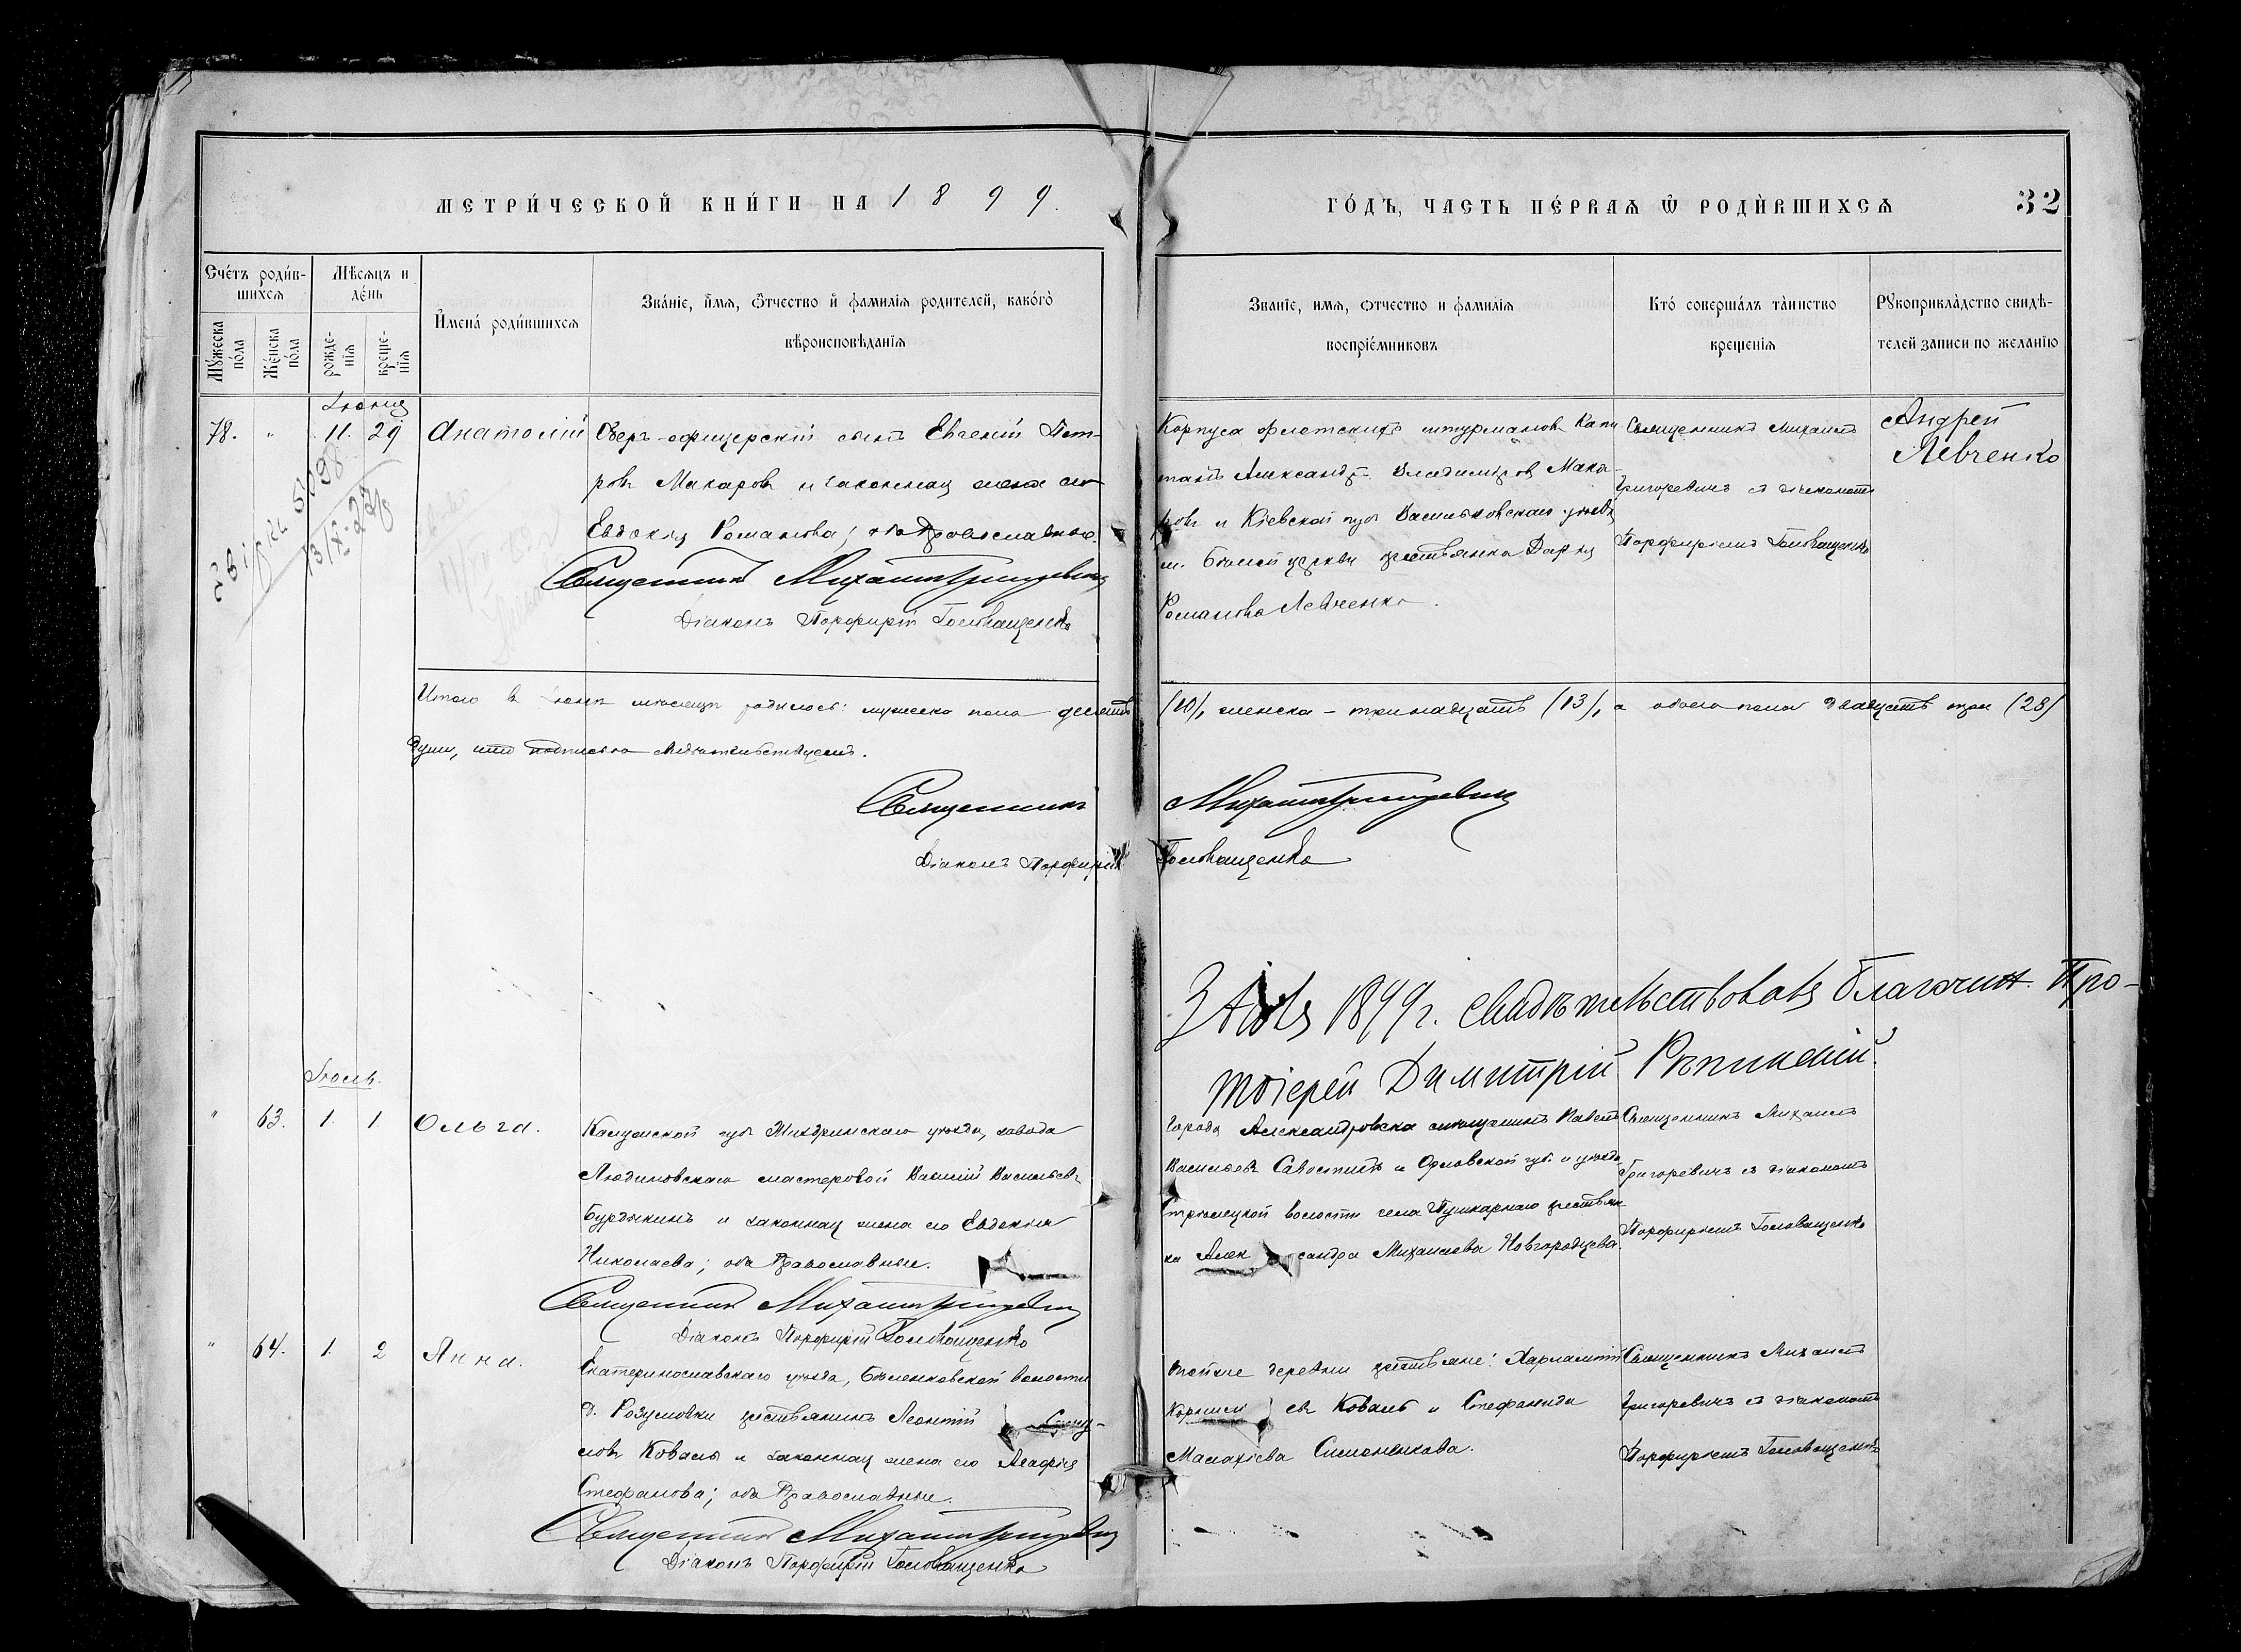 МЕТРИ́ЧЕСКОЙ КНИ́ГИ НА 1899.
ГО́ДЪ, ЧАСТЬ ПЕ́РВАѦ Ѿ РОДИ́ВШИХСѦ
32
Сче́тъ роди́в-
шихсѧ
Мѣ́сѧцъ и
де́нь
Мꙋ́жеска
по́ла
Же́нска
по́ла
рожде-
нїѧ
креще-
нїѧ
И҆мена́ роди́вшихсѧ
Зва́нїе, и҆́мѧ, ѻ҆́тчество и҆ фамилїѧ родителей, како́гѡ
вѣроисповѣ́данїѧ
Званїе, имѧ, ѻтчество и фамилїѧ
воспрїе́мниковъ
Кто́ соверша́лъ та́инство
крещенїѧ
Рꙋкоприкла́дство свидѣ́-
телей записи по желанїю
Іюня
78. " 11. 29 Анатолій
Оберъ-офицерскій сынъ Евгеній Пет-
ровъ Макаровъ и законная жена его
Евдокія Романова; оба Православные.
Священникъ Михаилъ Григоревичъ
Діаконъ Порфирій Головащенко
Корпуса флотскихъ штурмановъ Капи
танъ Александръ Владиміровъ Мака-
ровъ и Кіевской губ. Васильковскаго уѣзда
м. Бѣлой церкви крестьянка Дарія
Романова Левченко.
Священникъ Михаилъ
Григоревичъ съ діакономъ
Порфиріемъ Головащенко
Андрей
Левченко
5098
13/X-27
Итого въ Іюнѣ мѣсяцѣ родилось: мужеска пола десять (10), женска - тринадцать (13), а обоего пола двадцать три (23)
души, что подписью свидѣтельствуемъ.
Священникъ Михаилъ Григоревичъ
Діаконъ Порфирій Головащенко
3 Авг. 1899 г. свидѣтельствовалъ Благочин. Про-
тоіерей Димитрій Рѣпинскій.
Іюль.
" 63. 1. 1. Ольга.
Калужской губ. Жиздринскаго уѣзда, завода
Людиновскаго мастеровой Василій Васильевъ
Бурдыкинъ и законная жена его Евдокія
Николаева; оба Православные.
Священникъ Михаилъ Григоревичъ
Діаконъ Порфирій Головащенко
Города Александровска мѣщанинъ Павелъ
Васильевъ Савостинъ и Орловской губ. и уѣзда
Стрѣлецкой волости села Пушкарнаго крестьян
ка Александра Михаилова Новгородцева.
Священникъ Михаилъ
Григоревичъ съ діакономъ
Порфиріемъ Головащенко
" 64. 1. 2 Анна.
Екатеринославскаго уѣзда, Бѣленковской волости
д. Розумовки крестьянинъ Леонтій
ловъ Коваль и законная жена его Агафія
Стефанова; оба Православные.
Священникъ Михаилъ Григоревичъ
Діаконъ Порфирій Головащенко
деревни крестьяне: Харлампій
Корнилі евъ Коваль и Стефанида
Малахіева Симоненкова.
Священникъ Михаилъ
Григоревичъ съ діакономъ
Порфиріемъ Головащенко